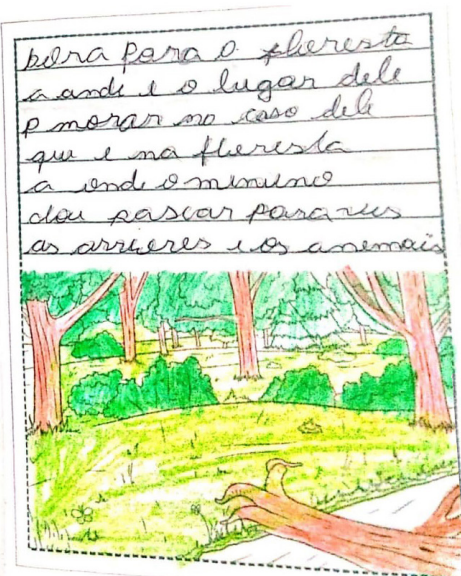 bora para o floresta
a onde e o lugar dele
p morar no caso dele
que e na floresta
a onde o minino
dou pasear para ves
as arveres e os anemais